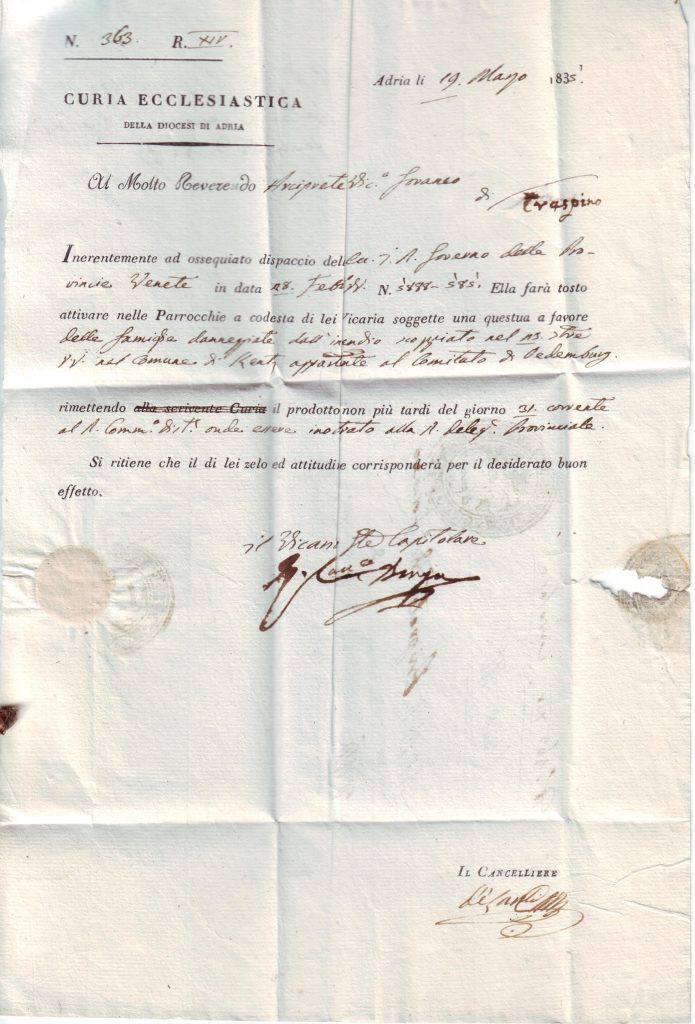 N. 363. R. XIV.
Adria li 19. Marzo 1835
CURIA ECCLESIASTICA
DELLA DIOCESI DI ADRIA
Al Molto Reverendo Arciprete Vic.o Foraneo
di
Inerentemente ad ossequiato dispaccio dell I. R. Governo delle Pro-
vincie Venete in data 28. N. Ella farà tosto
attivare nelle Parrocchie a codesta di lei Vicaria soggette una questua a favore
delle famiglie dannegiate dall' incendio scoppiato nel
nel Comune di al Comitato di Oedemburg.
rimettendo alla scrivente Curia il prodotto non più tardi del giorno 31. corrente
al R. Comm.o Dist.e onde essere inoltrato alla R. Deleg. Provinciale.
Si ritiene che il di lei zelo ed attitudine corrisponderà per il desiderato buon
effetto.
il Vicario Capitolare
IL CANCELLIERE